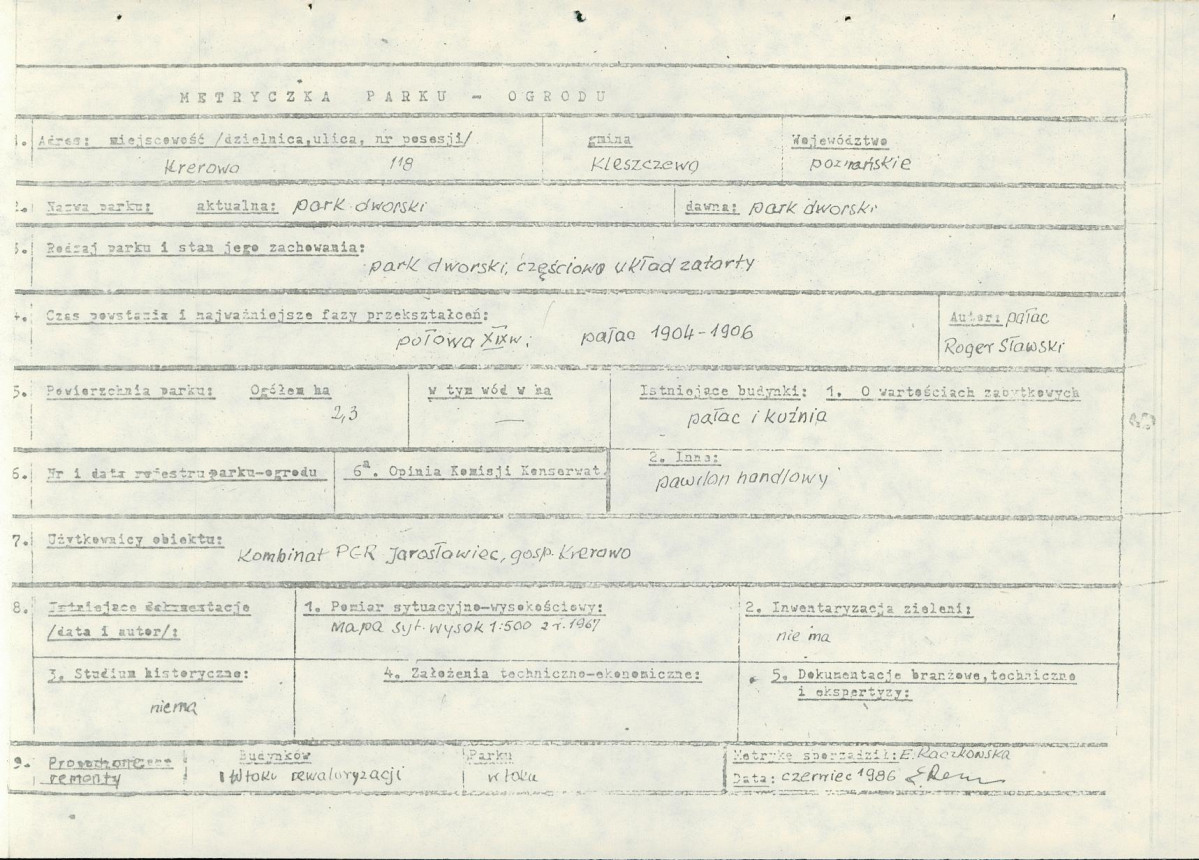 METRYCZKA PARKU - OGRODU
1. Adres: miejscowość /dzielnica,ulica, nr posesji/ gmina Województwo
Krerowo 118 Kleszczewo poznańskie
2. Nazwa parku: aktualna: park dworski dawna: park dworski
3. Rodzaj parku i stan jego zachowania:
park dworski, częściowo układ zatarty
4. Czas powstania i najważniejsze fazy przekształceń: Autor: pałac
połowa XIX w; pałac 1904-1906 Roger Sławski
5. Powierzchnia parku: Ogółem ha w tym wód w ha Istniejące budynki: 1. O wartościach zabytkowych
2,3 — pałac i kuźnia
6. Nr i data rejestru parku-ogrodu 6a. Opinia Komisji Konserwat. 2. Inne:
pawilon handlowy
7. Użytkownicy obiektu:
Kombinat PGR Jarosławiec, gosp. Krerowo
8. Istniejące dokumentacje 1. Pomiar sytuacyjno-wysokościowy: 2. Inwentaryzacja zieleni:
/data i autor/: Mapa syt. wysok 1:500 z r. 1967 nie ma
3. Studium historyczne: 4. Założenia techniczno-ekonomiczne: 5. Dokumentacje branżowe,techniczne
i ekspertyzy:
niema
9. Budynków Parku Metrykę sporządził: E. Raczkowska
remonty W toku rewaloryzacji w toku Data: czerwiec 1986